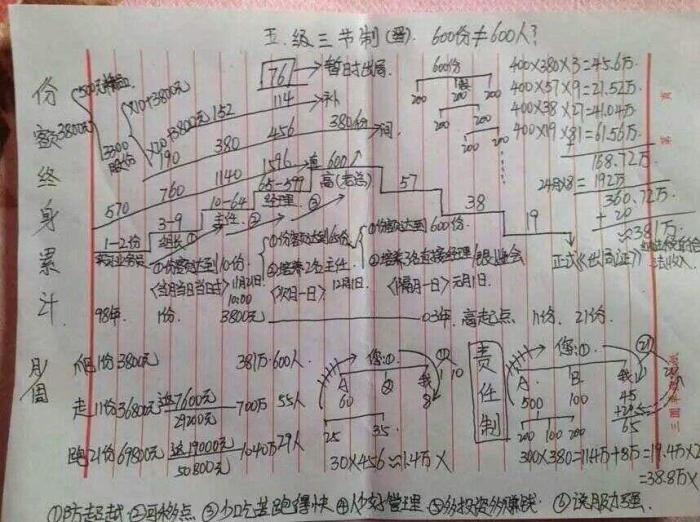 五级三节制(四). 600份≠600人?
份额终身累计
月/周
500元
3800元
3300
股份
×10+3800元 152
114→补
76→暂时出局
×20+3800元
190 380 456 380份→间
570 760 1140 1596 直600
1-2份
3-9
组长①
10-64
主任②
65-599
经理③
高(老总)
57
38
19
600份
200 200 200
200 200
200 200
400×380×3=45.6万
400×57×9=21.52万
400×38×27=41.04万
400×19×81=61.56万
168.72万
24月×8=192万
360.72万
+20
≈381万
正式《出局证》
①份额达到10份
<当月当日当时> 11月21日
10:00
①份额达到65份
②培养2名主任
<次月一日> 12月1日
①份额达到600份
②培养3名直接经理
<隔月一日> 元月1日
98年 1份 3800元 03年 高起点 11份、21份
1份3800元 381万·600人
走11份36800元 送7600元 700万 55人
29200元
跑21份69800元 送19000元 1040万 29人
50800元
您:①
A ② 我
60 8
① 10
25 35
30×456≈1.4万×
责任制
您:①
A B 我
500 100 45
65
㉑
200 100 200
300×380=11.4万+8万=19.4万×2
=38.8万×
①防超越 ②回移点 ③少吃苦跑得快 ④人少好管理 ⑤多投资多赚钱 ⑥说服力强